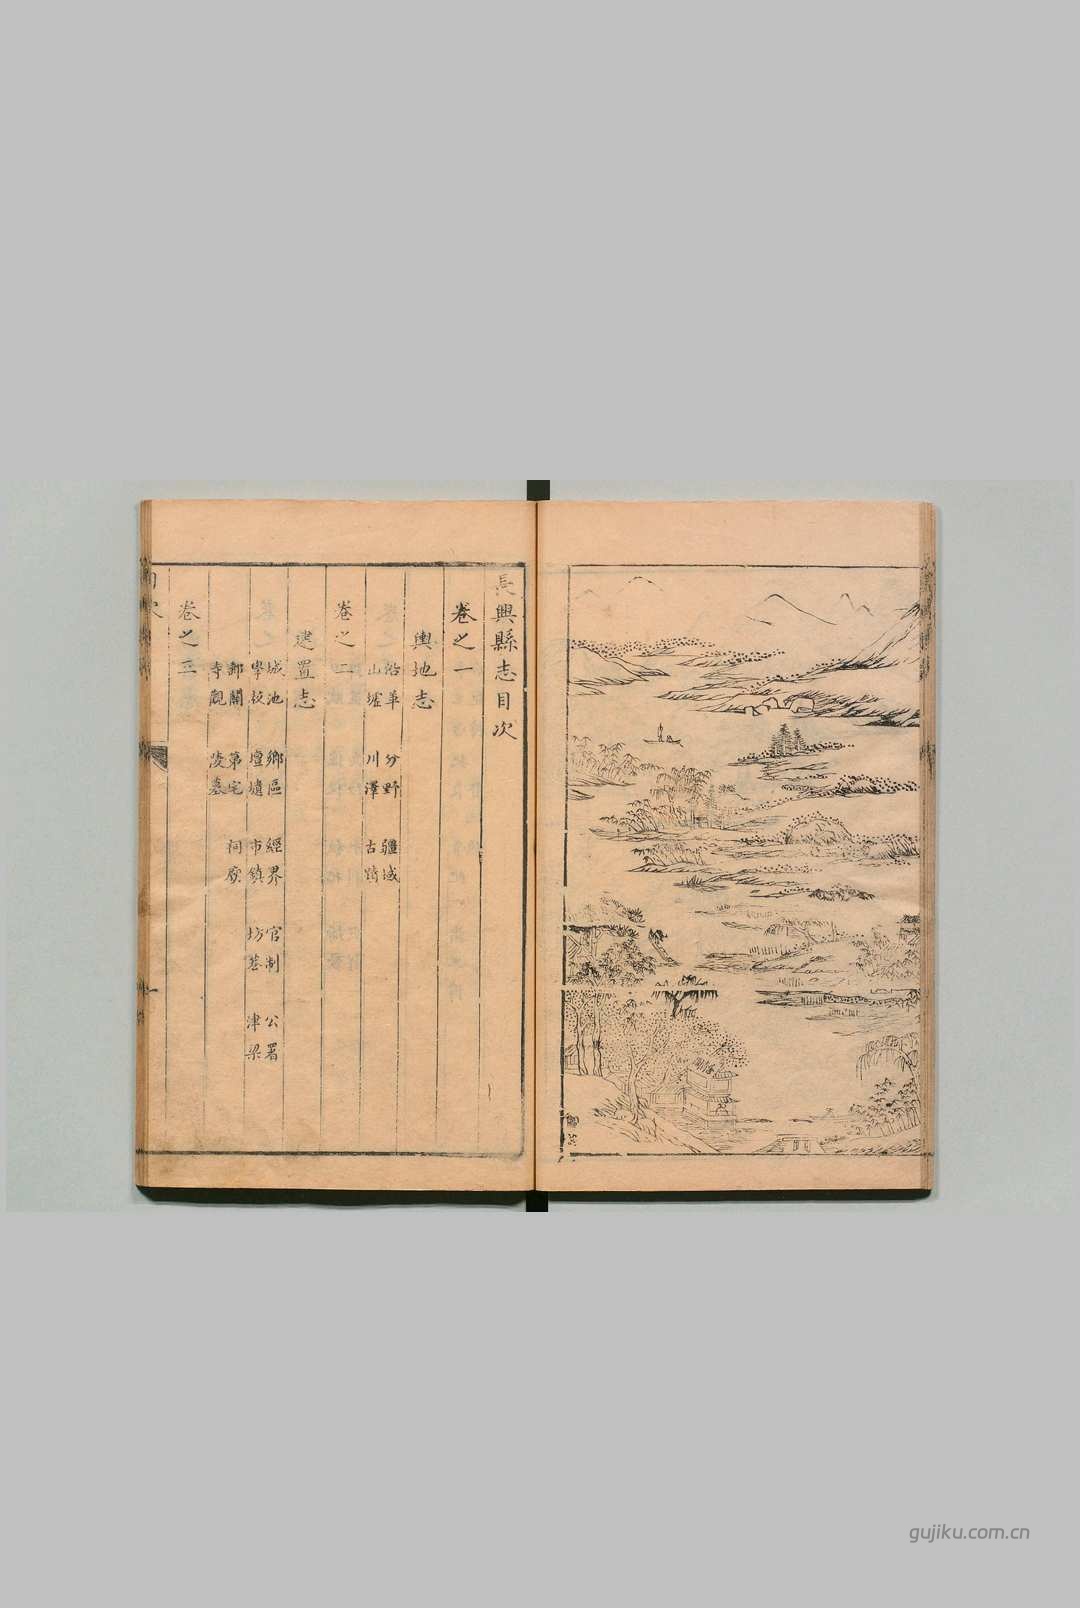 長興縣志目次
卷之一
輿地志
沿革 分野 疆域
山墟 川澤 古蹟
卷之二
建置志
城池 鄉區 經界 官制 公署
學校 壇壝 市鎮 坊巷 津梁
郵關 第宅 祠廟
寺觀 陵墓
卷之三
gujiku.com.cn